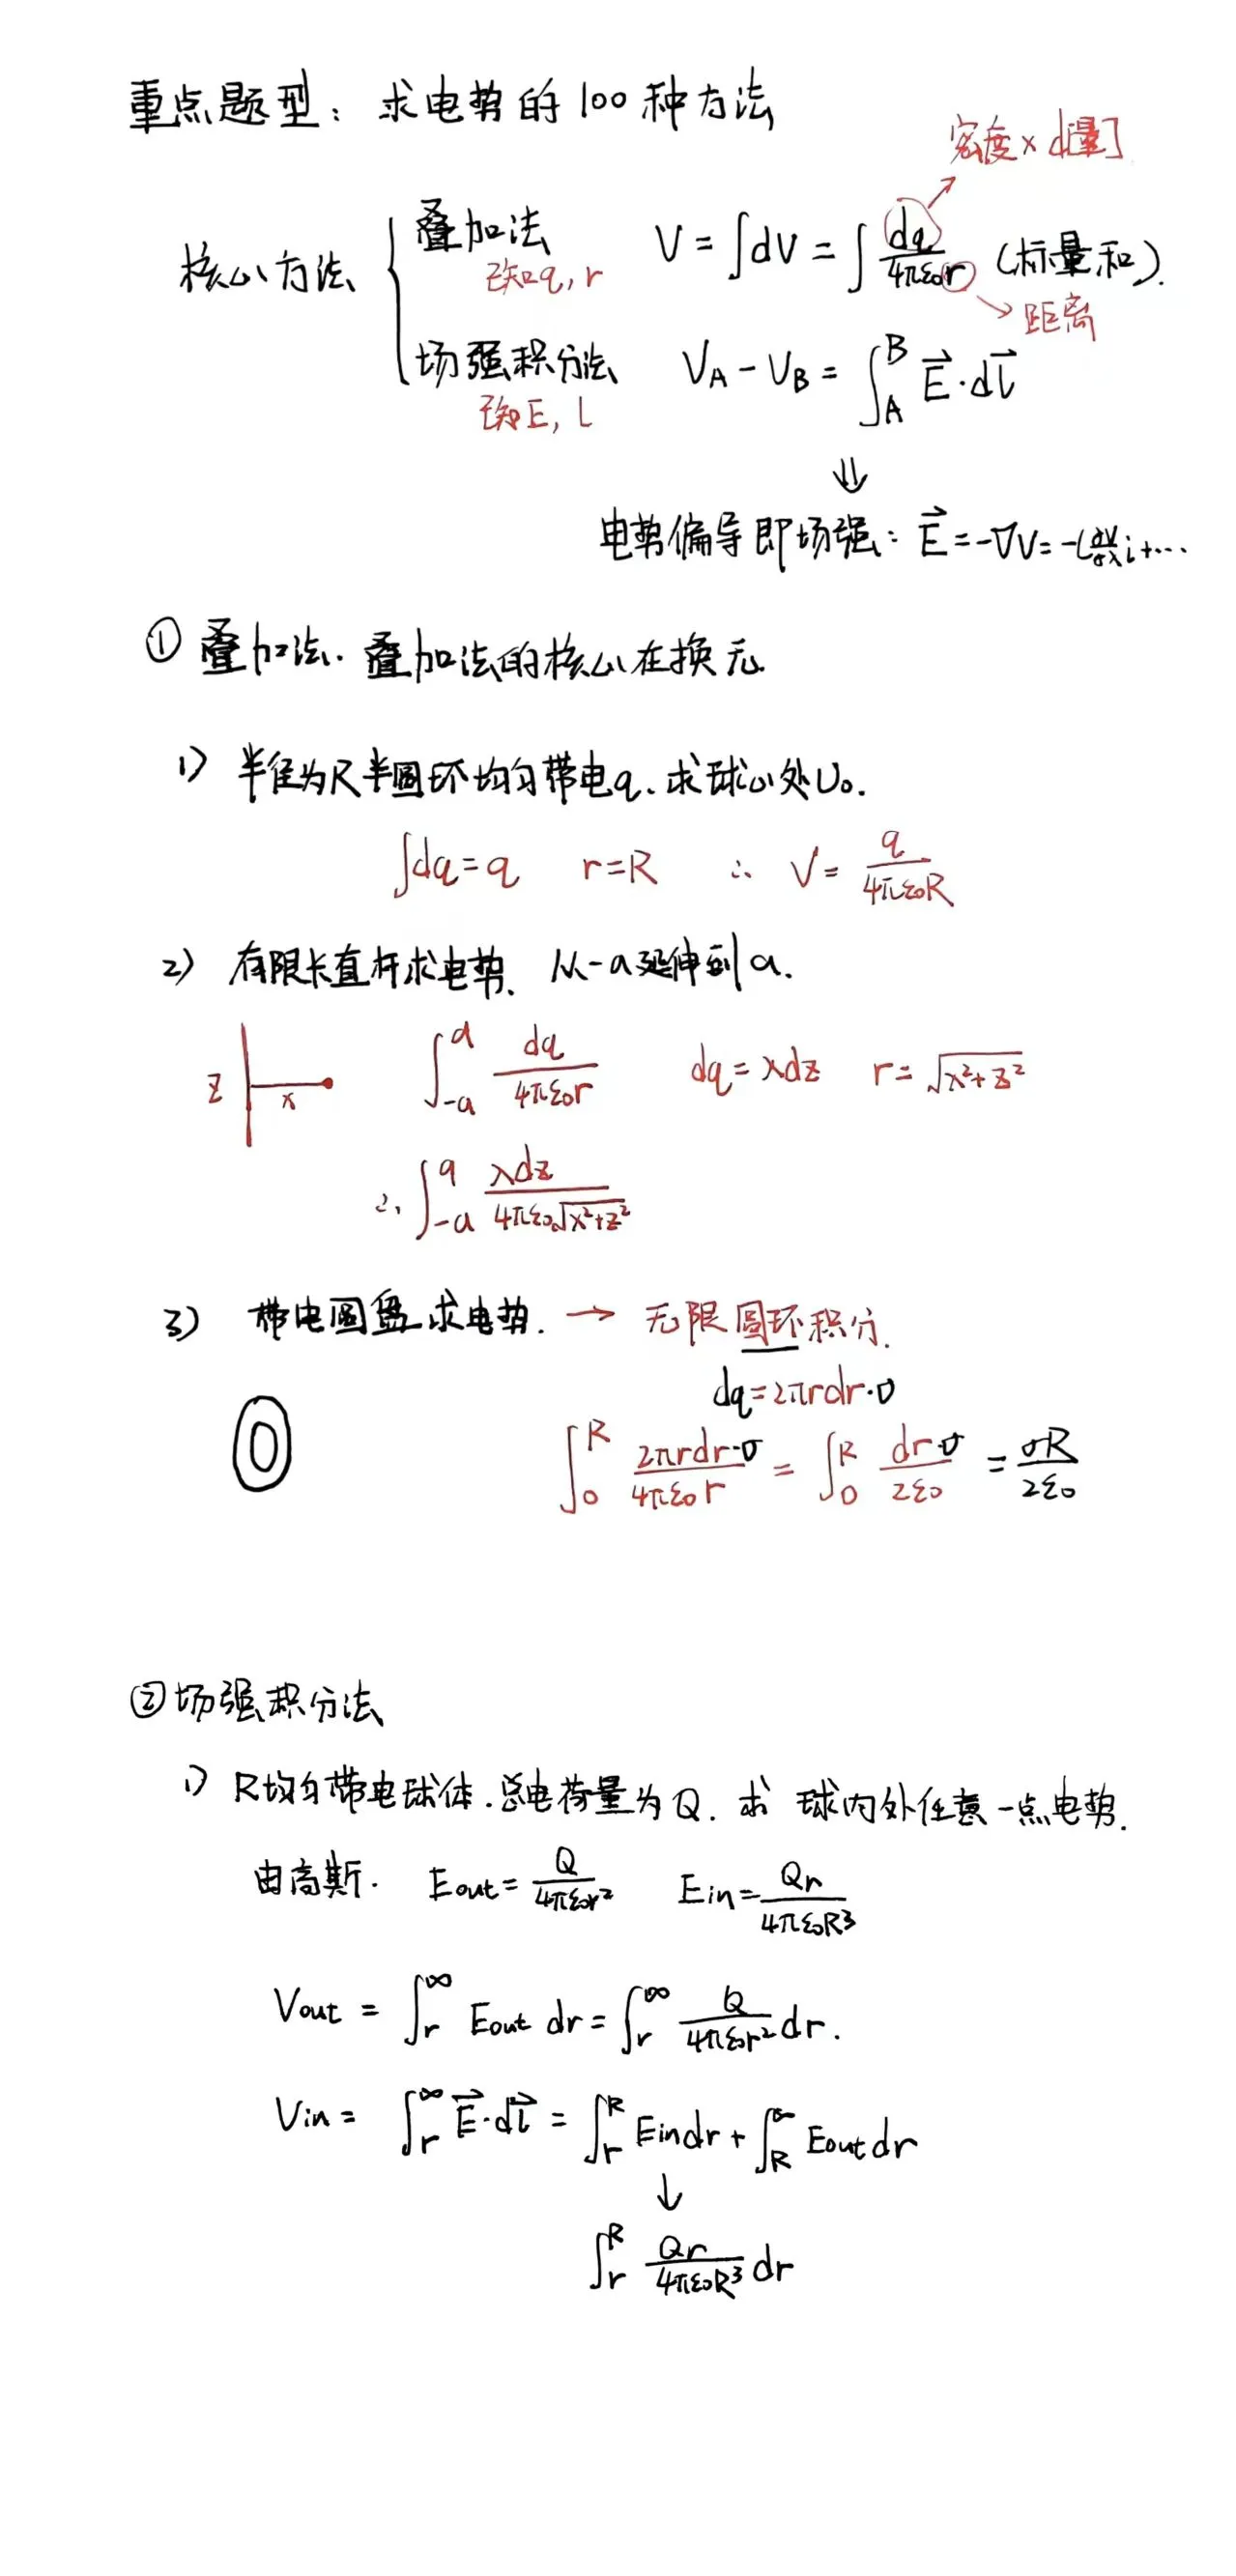 重点题型：求电势的100种方法
密度×d[量]
核心方法
叠加法 V=∫dV=∫dq/4πε₀r (标量和).
已知q, r
距离
场强积分法 V_A-V_B=∫_A^B E⃗·dl⃗
已知E, l
⇓
电势偏导即场强：E⃗=-∇V=-(∂V/∂x i+…
① 叠加法. 叠加法的核心在换元.
1) 半径为R半圆环均匀带电q.求球心处U₀.
∫dq=q r=R ∴ V=q/4πε₀R
2) 有限长直杆求电势. 从-a延伸到a.
z x ∫_-a^a dq/4πε₀r dq=λdz r=√x²+z²
∴ ∫_-a^a λdz/4πε₀√x²+z²
3) 带电圆盘求电势. → 无限圆环积分.
dq=2πrdr·σ
∫_0^R 2πrdr·σ/4πε₀r = ∫_0^R dr·σ/2ε₀ = σR/2ε₀
②场强积分法
1) R均匀带电球体.总电荷量为Q. 求 球内外任意一点电势.
由高斯. Eout=Q/4πε₀r² Ein=Qr/4πε₀R³
Vout = ∫_r^∞ Eout dr=∫_r^∞ Q/4πε₀r² dr.
Vin= ∫_r^∞ E⃗·dl⃗ = ∫_r^R Eindr+∫_R^∞ Eoutdr
↓
∫_r^R Qr/4πε₀R³ dr